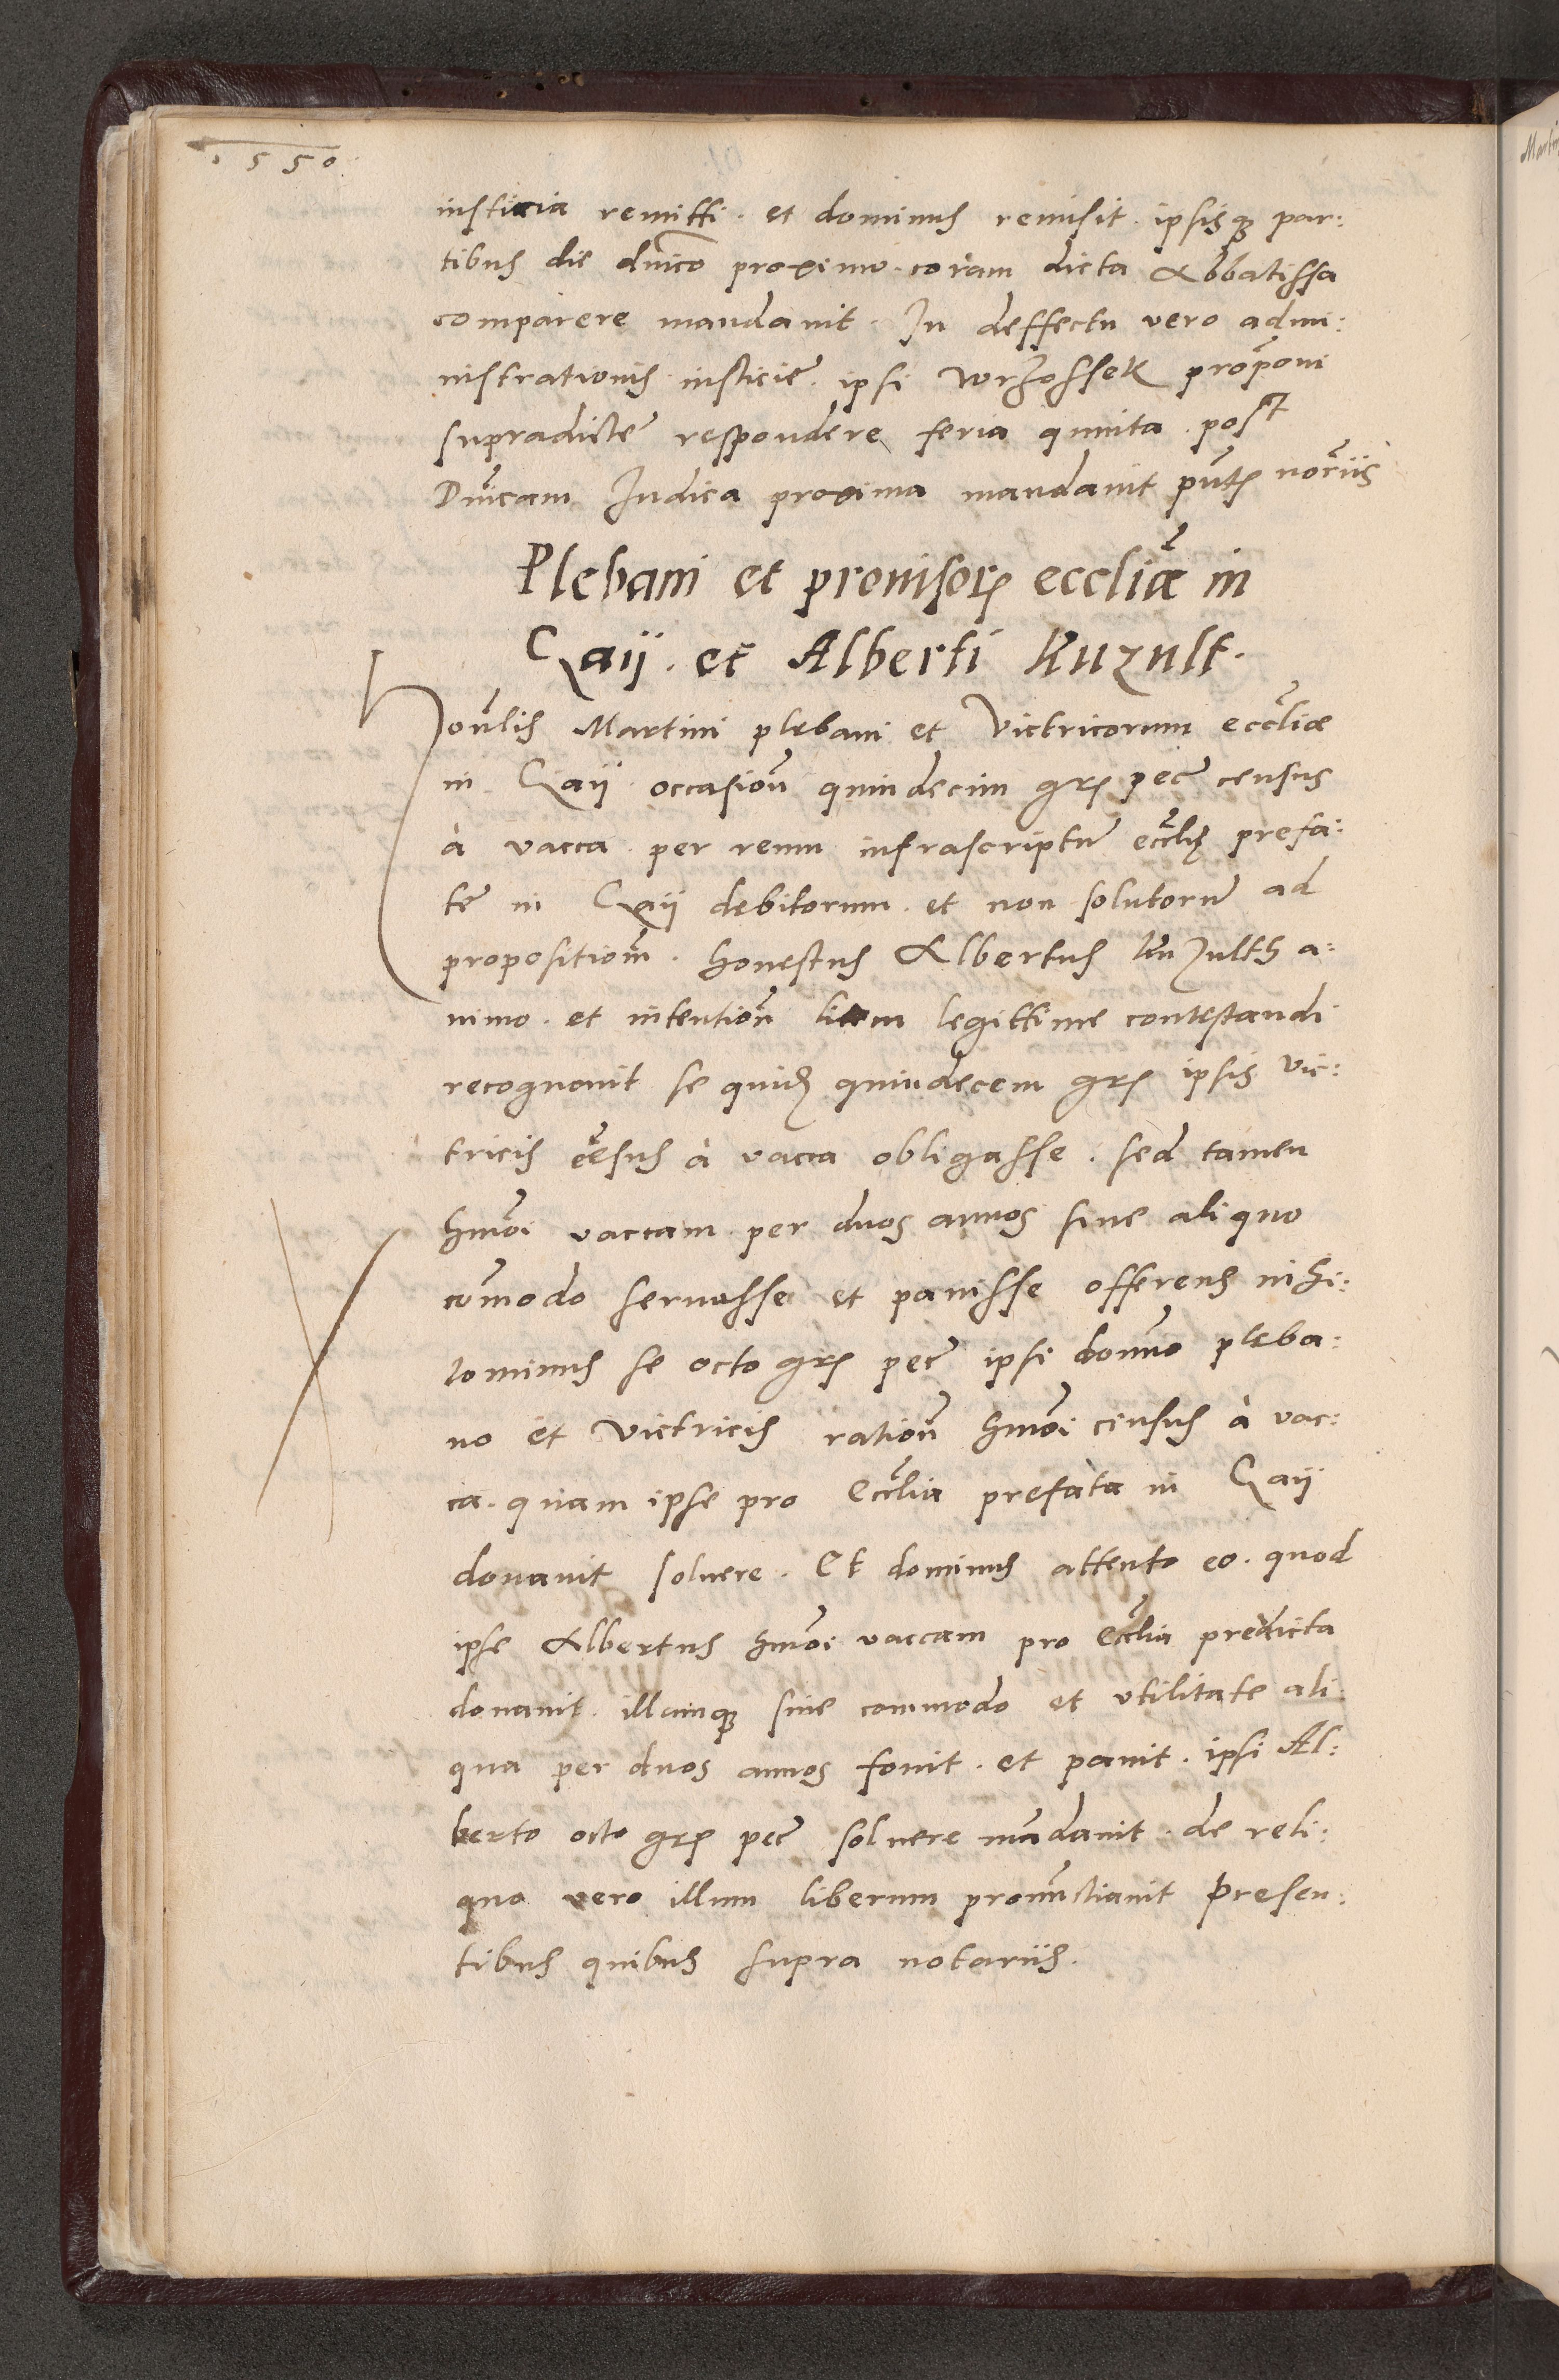 1550.
iusticia remitti. et dominus remisit. ipsisq; par:
tibus die dnico proximo. coram dicta Abbatissa
comparere mandauit. In deffectu vero admi:
nistrationis iusticiē. ipsi Worzossek proponi
supradictē respondere feria quinta post
Dnicam Iudica proxima mandauit pntȩ noriis
Plebani et prouisorȩ ecclīæ in
Gaij. et Alberti Kuzult.
Honlis Martini plebani et Victricorum eccliæ
in Gaij occasion quindecim grȩ pec census
à vacca per reum infrascriptū ecclię prefa:
tē in Gaij debitorum. et non solutorū ad
proposition̄. honestus Albertus Kuzulth a:
nimo. et intention̄ litem legittime contestandi
recognouit se quidē quindecem grȩ ipsis vic:
tricis cēsus à vacca obligasse. sed tamen
hmōi vaccam per duos annos sine aliquo
cōmodo seruasse et pauisse offerens nihi:
lominus se octo grȩ pec ipsi domno pleba:
no et Victricis ration̄ hmōi census à vac:
ca. quam ipse pro Ecclia prefata in Gaij
donauit soluere. Et dominus attento eo. quod
ipse Albertus hmōi vaccam pro Ecclia predicta
donauit. illamq; sine commodo et vtilitate ali:
qua per duos annos fouit. et pauit. ipsi Al:
berto octo grȩ pec soluere mādauit. de reli:
quo vero illum liberum pronūctiauit presen:
tibus quibus supra notariis.